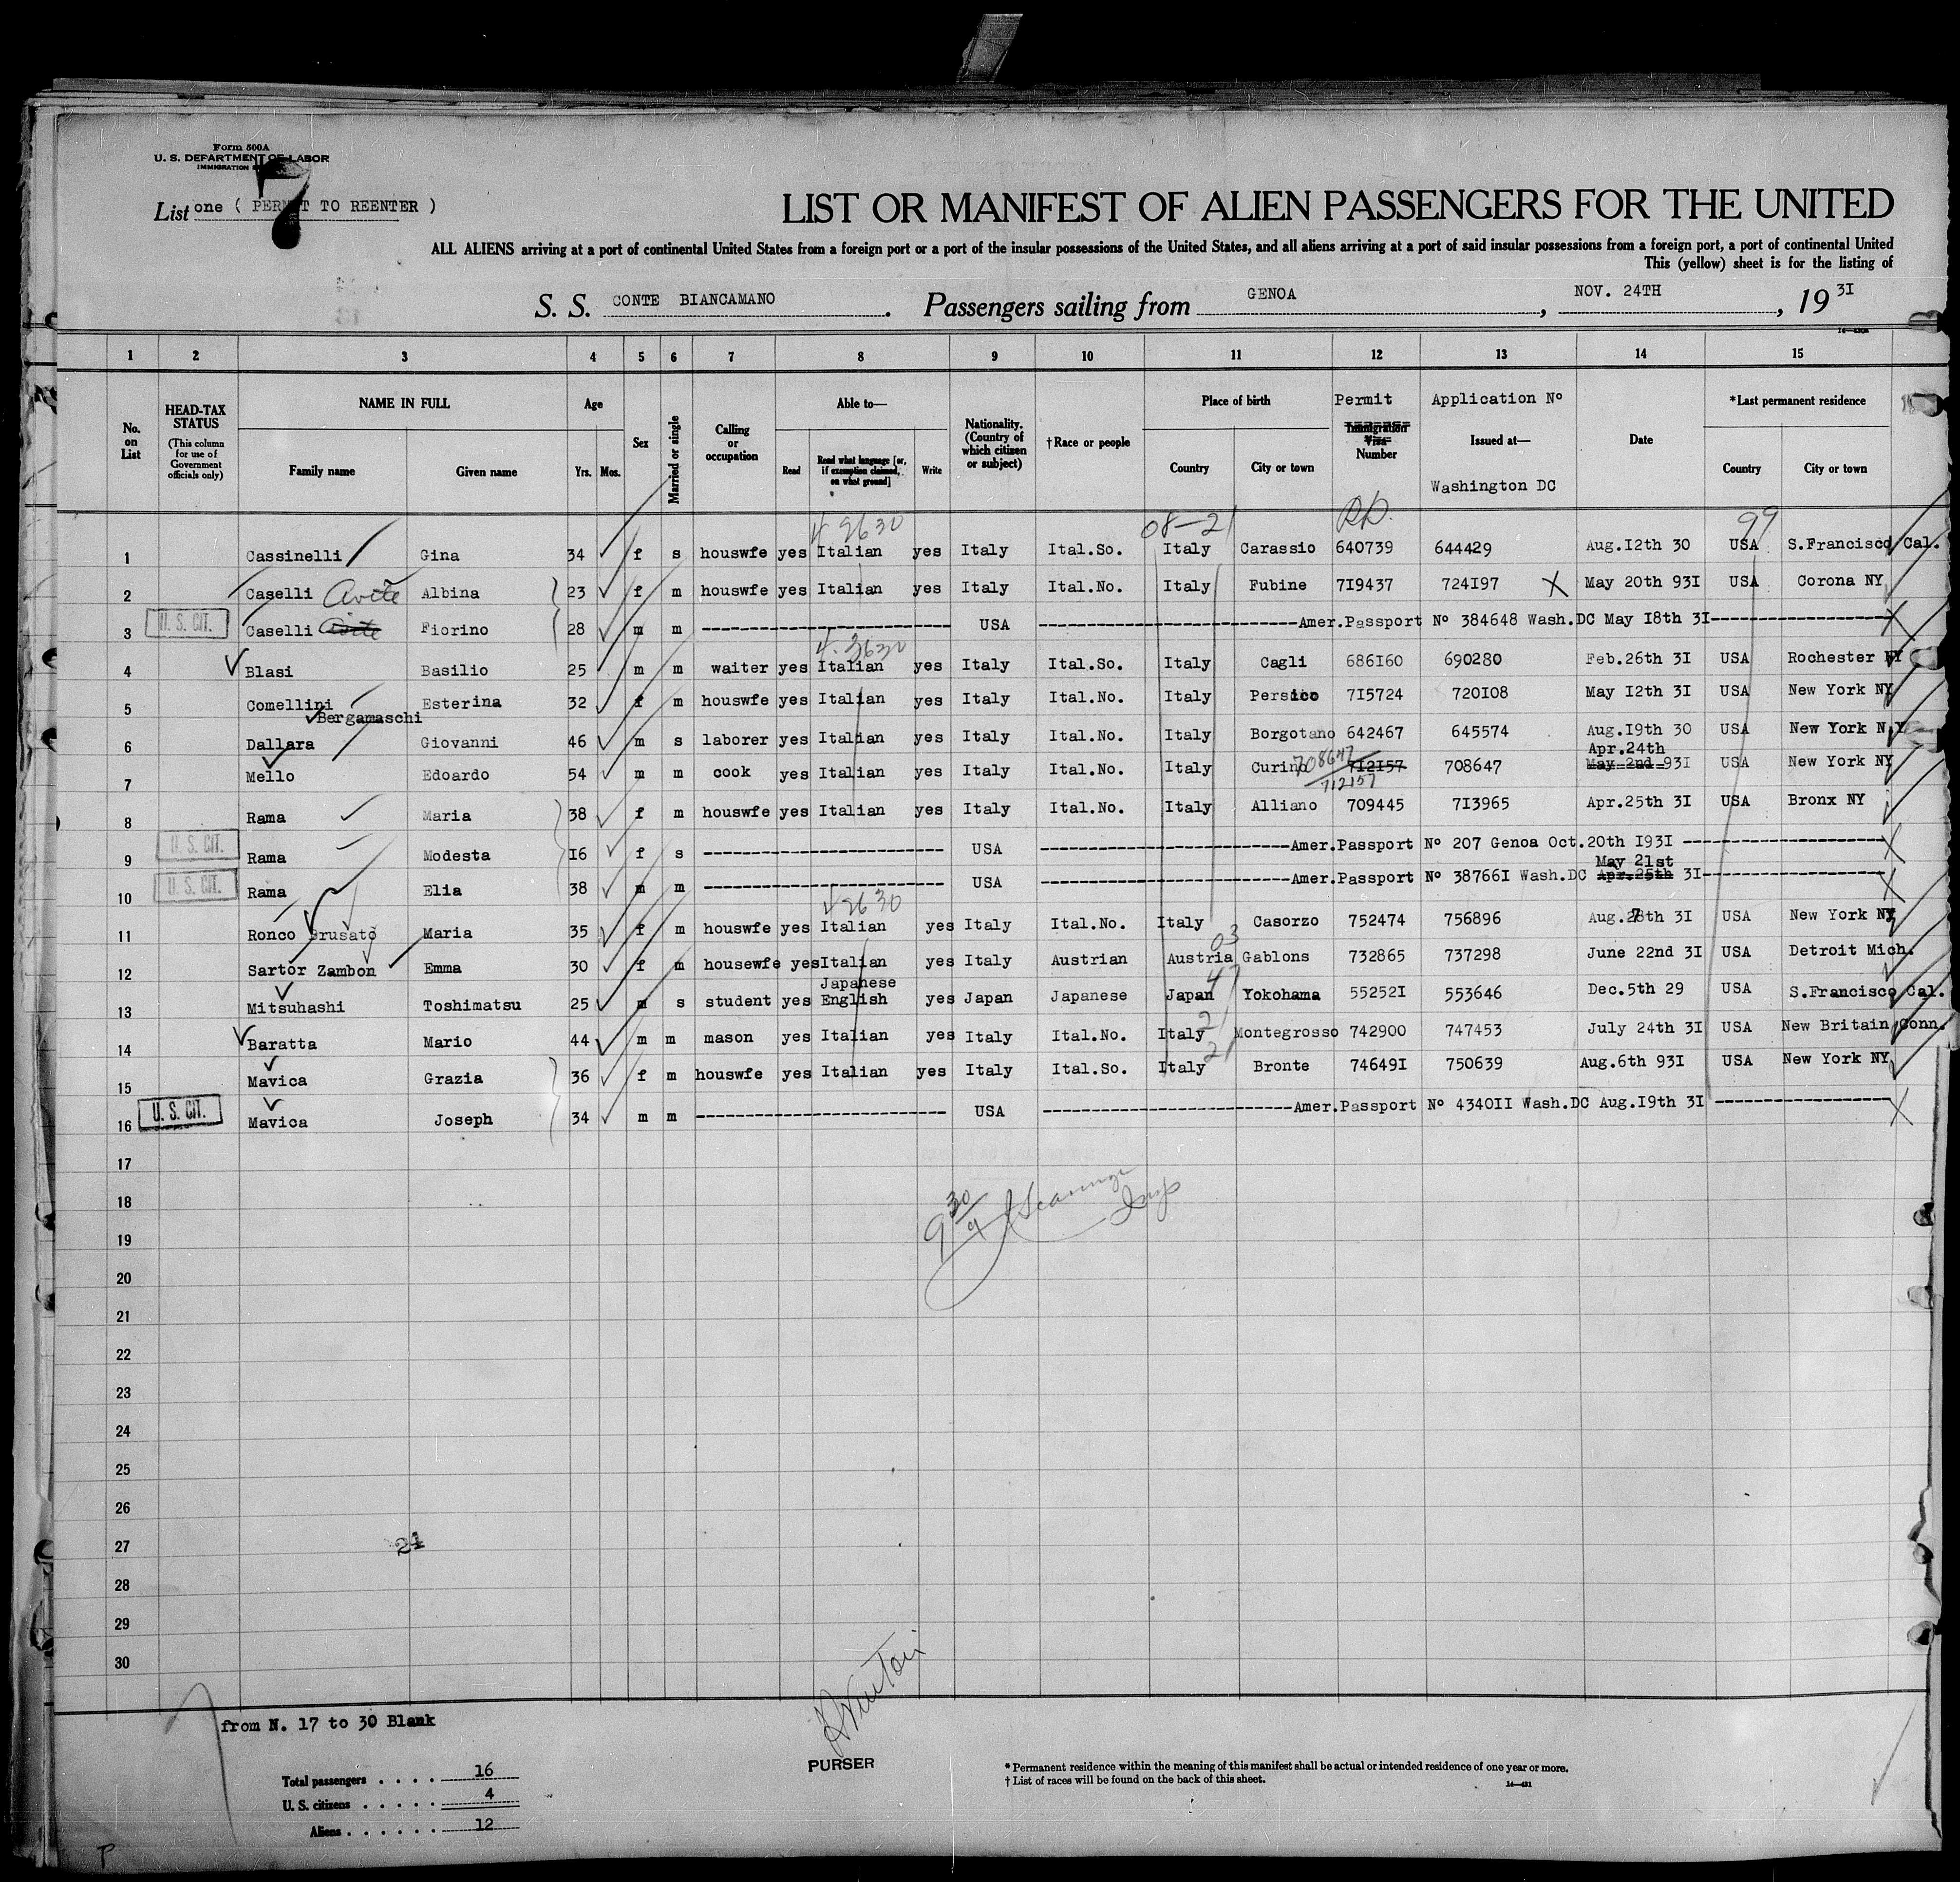 Form 500A
U. S. DEPARTMENT OF LABOR
IMMIGRATION
7
List one ( PERMIT TO REENTER )
LIST OR MANIFEST OF ALIEN PASSENGERS FOR THE UNITED
ALL ALIENS arriving at a port of continental United States from a foreign port or a port of the insular possessions of the United States, and all aliens arriving at a port of said insular possessions from a foreign port, a port of continental United
This (yellow) sheet is for the listing of
S. S. CONTE BIANCAMANO. Passengers sailing from GENOA, NOV. 24TH, 19 3I
1 2 3 4 5 6 7 8 9 10 11 12 13 14 15
No. on List
HEAD-TAX STATUS (This column for use of Government officials only)
NAME IN FULL Family name Given name
Age Yrs. Mos.
Sex
Married or single
Calling or occupation
Able to— Read Read what language [or, if exemption claimed, on what ground] Write
Nationality. (Country of which citizen or subject)
† Race or people
Place of birth Country City or town
Permit Immigration Visa Number
Application Nº Issued at— Washington DC
Date
*Last permanent residence Country City or town
4 2630 08-21 99
1 Cassinelli Gina 34 f s houswfe yes Italian yes Italy Ital.So. Italy Carassio 640739 644429 Aug.I2th 30 USA S.Francisco Cal.
2 Caselli Avite Albina 23 f m houswfe yes Italian yes Italy Ital.No. Italy Fubine 7I9437 724I97 X May 20th 93I USA Corona NY
U. S. CIT.
3 Caselli Avite Fiorino 28 m m USA Amer.Passport Nº 384648 Wash.DC May I8th 3I X
4 3630
4 Blasi Basilio 25 m m waiter yes Italian yes Italy Ital.So. Italy Cagli 686I60 690280 Feb.26th 3I USA Rochester NY
5 Comellini Esterina 32 f m houswfe yes Italian yes Italy Ital.No. Italy Persico 7I5724 720I08 May I2th 3I USA New York NY
Bergamaschi
6 Dallara Giovanni 46 m s laborer yes Italian yes Italy Ital.No. Italy Borgotano 642467 645574 Aug.I9th 30 USA New York N.Y
Apr.24th
708647
7 Mello Edoardo 54 m m cook yes Italian yes Italy Ital.No. Italy Curino 7I2I57 708647 May 2nd 93I USA New York NY
712157
8 Rama Maria 38 f m houswfe yes Italian yes Italy Ital.No. Italy Alliano 709445 7I3965 Apr.25th 3I USA Bronx NY
U. S. CIT.
9 Rama Modesta I6 f s USA Amer.Passport Nº 207 Genoa Oct.20th I93I X
May 21st
U. S. CIT.
10 Rama Elia 38 m m USA Amer.Passport Nº 38766I Wash.DC Apr.25th 3I X
4 2630
11 Ronco Brusato Maria 35 f m houswfe yes Italian yes Italy Ital.No. Italy Casorzo 752474 756896 Aug.27th 3I USA New York NY
03
12 Sartor Zambon Emma 30 f m housewfe yes Italian yes Italy Austrian Austria Gablons 732865 737298 June 22nd 3I USA Detroit Mich.
Japanese
13 Mitsuhashi Toshimatsu 25 m s student yes English yes Japan Japanese Japan Yokohama 55252I 553646 Dec.5th 29 USA S.Francisco Cal.
14 Baratta Mario 44 m m mason yes Italian yes Italy Ital.No. Italy Montegrosso 742900 747453 July 24th 3I USA New Britain Conn.
15 Mavica Grazia 36 f m houswfe yes Italian yes Italy Ital.So. Italy Bronte 74649I 750639 Aug.6th 93I USA New York NY
U. S. CIT.
16 Mavica Joseph 34 m m USA Amer.Passport Nº 4340II Wash.DC Aug.I9th 3I X
17
18
19
20
21
22
23
24
25
26
27
28
29
30
24
from N. 17 to 30 Blank
PURSER
Total passengers . . . . 16
U. S. citizens . . . . . 4
Aliens . . . . . . 12
* Permanent residence within the meaning of this manifest shall be actual or intended residence of one year or more.
† List of races will be found on the back of this sheet.
14—431